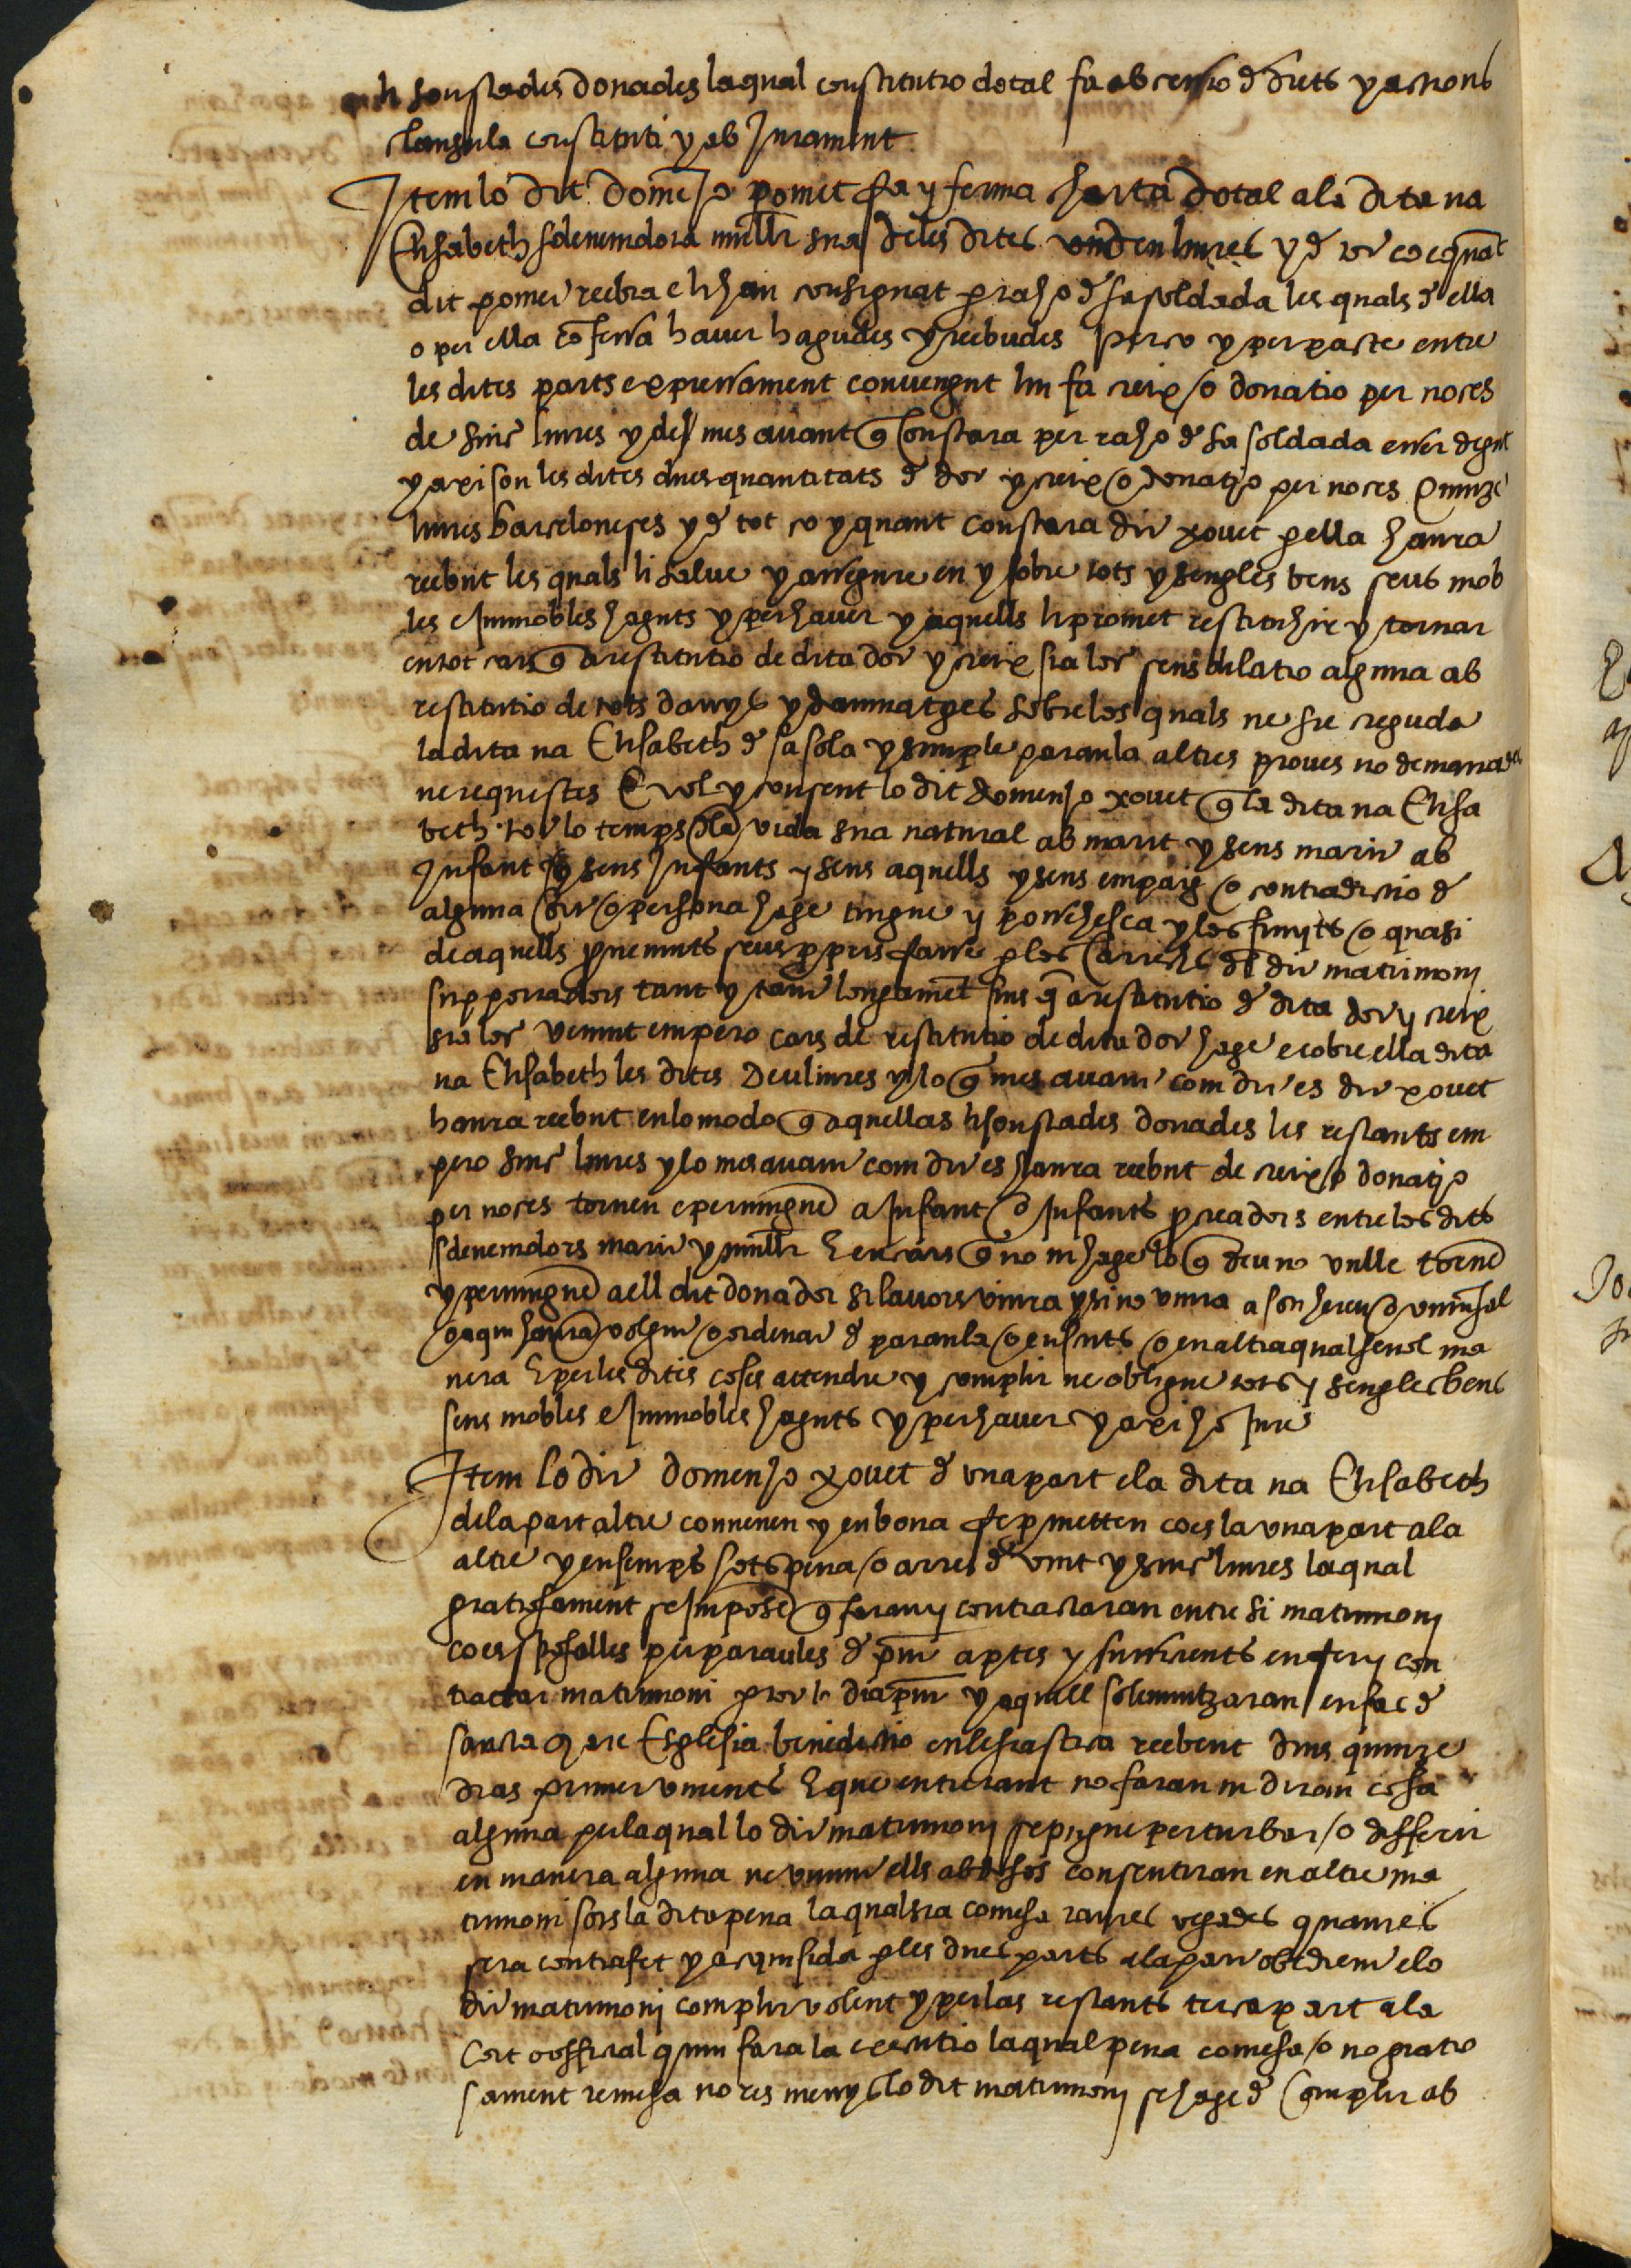 li son stades donades laqual constitutio dotal fa ab cessio d drets y actions
clausula constituti y ab Jurament
Item lo dit domenJo pomet fa y ferma charta dotal ala dita na
Elisabeth sdevenidora muller sua deles dites deu liures y d tot
dit pomer reebra e li han consignat p raho d sa soldada les quals d ella
o per ella cofessa hauer hagudes y reebudes Perço y per pacte entre
les dites parts expressament convengut lin fa creix /o donatio per noces
de sinc liures y del mes auant q constara per raho d sa soldada esser degut
y axi son les dites dues quantitats d dot y creix /o donatio per noces Quinze
liures barceloneses y d tot ço y quant constara dit xouet p ella haura
reebut les quals li salue y assegure en y sobre tots y sengles bens seus mob
les e Immobles haguts y per hauer y aquells li promet restituhir y tornar
en tot cars q a restitutio de dita dot y creix sia loc sens dilatio alguna ab
restitutio de tots danys y damnatges sobre los quals ne sie creguda
la dita na Elisabeth d sa sola y simple paraula altres proues no demanades
ne requestes E vol y consent lo dit domenJo xouet q la dita na Elisa
beth tot lo temps dla vida sua natural ab marit y sens marit ab
Infant y sens Infants y sens aquells y sens empaig /o contradictio d
alguna cort /o persona hage tingue y possehesca y los fruyts /o quasi
de aquells puenints seus ppris fasse p los carrechs dl dit matrimoni
supportadors tant y tant longament fins q a restitutio d dita dot y creix
sia loc venint empero cars de restitutio de dita dot hage e cobre ella dita
na Elisabeth les dites Deu liures y lo q mes auant com dit es dit xouet
haura reebut en lo modo q aquellas li son stades donades les restants em
pero sinc liures y lo mes auant com dit es haura reebut de creix /o donatio
per noces tornen e pervingue a Infant /o Infants pcreadors entre los dits
sdevenidors marit y muller E en cars q no ni hage lo q deu no vulle torne
y pervingue a ell dit donador si lauors viura y si no viura a son hereu /o vniuersal
/o a qui haura volgut /o ordenat d paraula /o en scrits /o en altra qualseuol ma
nera E per les dites coses attendre y complir ne obligue tots y sengles bens
seus mobles e Immobles haguts y per hauer y axi ho Jure
Item lo dit domenJo xouet d vna part e la dita na Elisabeth
dela part altre conuenen y en bona fe pmetten ço es la vna part ala
altre y ensemps sots pena /o arres d vint y sinc liures laqual
gratiosament se Impose q faran y contractaran entre si matrimoni
ço es sposalles per paraules d pnt aptes y sufficients en fer y con
tractar matrimoni p tot lo dia pnt y aquell solemnitzaran en faç d
sancta mare Esglesia benedictio eclesiastica reebent dins quinze
dias primer vinents E que entretant no faran ni diran cosa
alguna per laqual lo dit matrimoni se pugue perturbar /o differir
en manera alguna ne viuint ells abdosos consentiran en altre ma
trimoni sots la dita pena laqual sia comesa tantes vegades quantes
sera contrafet y acquisida p les dues parts ala part obedient e lo
dit matrimoni complir volent y per las restants terça part ala
Cort o official quin fara la executio laqual pena comesa /o no gratio
sament remesa no res menys lo dit matrimoni se hage d complir ab